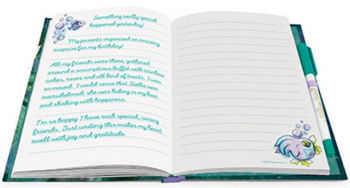 Something really special
happened yesterday!
My parents organized an amazing
surprise for my birthday!
All my friends were there, gathered
around a scrumptious buffet with rainbow
cakes, roses and all kind of treats. I was
so moved. I could sense that Stella was
overwhelmed; she was hiding in my hair
and shaking with happiness.
I'm so happy I have such special, caring
friends. Just writing this makes my heart
swell with joy and gratitude.